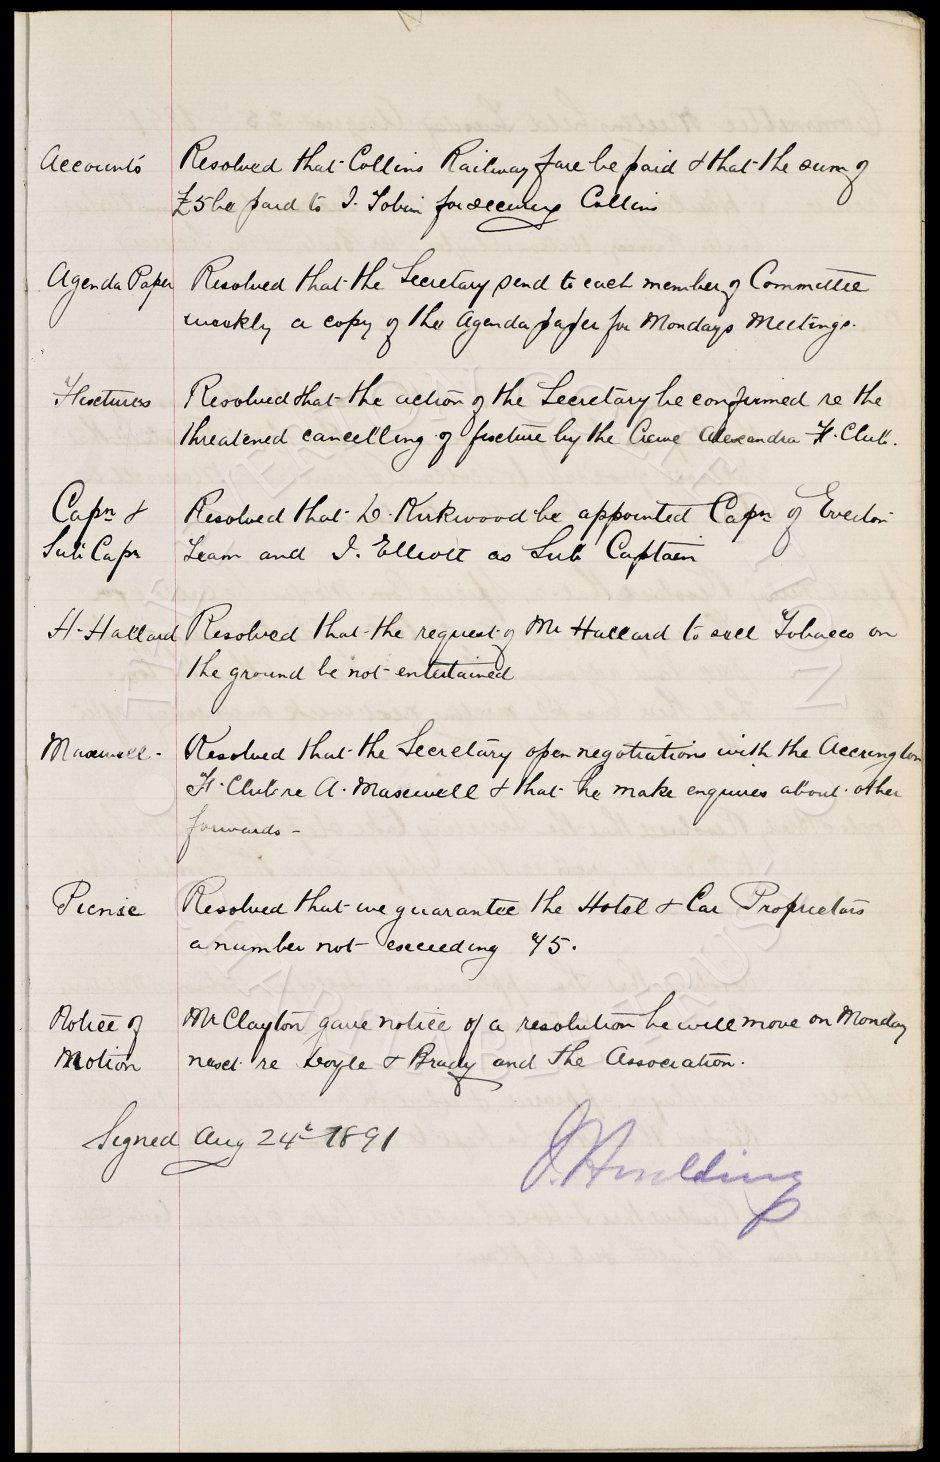 Accounts Resolved that Collins Railway fare be paid & that the sum of
£5 be paid to J. Tobin for securing Collins
Agenda Paper Resolved that the Secretary send to each member of Committee
weekly a copy of the Agenda paper for Mondays Meetings.
Fixtures Resolved that the action of the Secretary be confirmed re the
threatened cancelling of fixture by the Crewe Alexandra F. Club.
Capn & Resolved that D. Kirkwood be appointed Capn of Everton
Sub Capn Team and J. Elliott as Sub Captain
H. Hallard Resolved that the request of Mr Hallard to sell Tobacco on
the ground be not entertained
Maxwell - Resolved that the Secretary open negotiations with the Accrington
F. Club re A. Maxwell & that he make enquires about other
forwards -
Picnic Resolved that we guarantee the Hotel & Car Proprietors
a number not exceeding 45.
Notice of Mr Clayton gave notice of a resolution he will move on Monday
Motion next re Doyle & Brady and the Association.
Signed Aug 24th 1891 J. Houlding